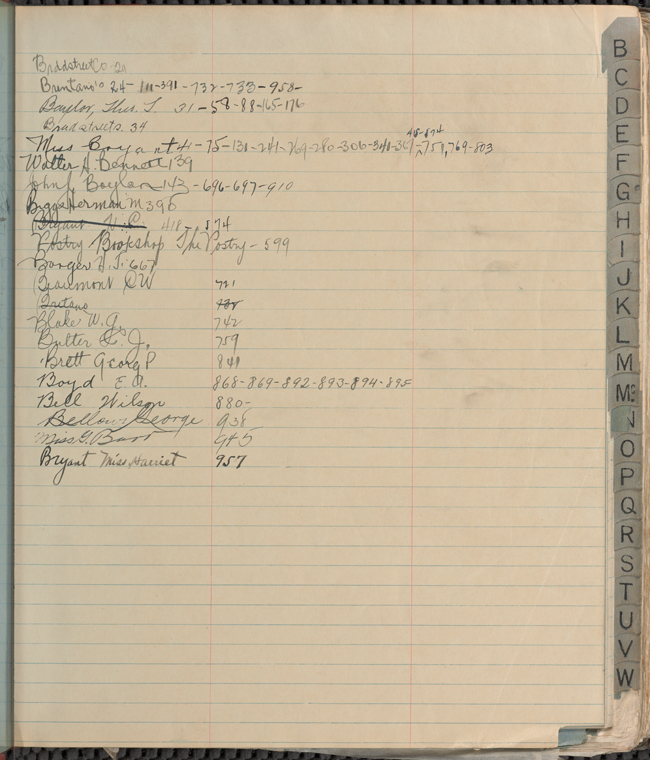 Bradstreet Co-20
Brentano's 24- 111-391-732-733-958-
Baylor, Thos. J. 31-58-88-165-176
Bradstreets. 34
418-574
Miss Bryant 41-75-131-241-269-280-306-340-361-751,769-803
Walter A. Bennett 139
John J. Boylan 143-696-697-910
Biggs Herman M 396
Bryant 418-574
Bookshop The Post 599
Barger 667
Beaumont CW 721
732
Blake W. G. 742
Bulter J. 759
Brett Georg P 841
Boyd E. A. 868-869-892-893-894-895
Bell Wilson 880-
Bellows George 938
Miss G. Barr 945
Bryant Miss Harriet 957
B
C
D
E
F
G
H
I
J
K
L
M
Mc
N
O
P
Q
R
S
T
U
V
W